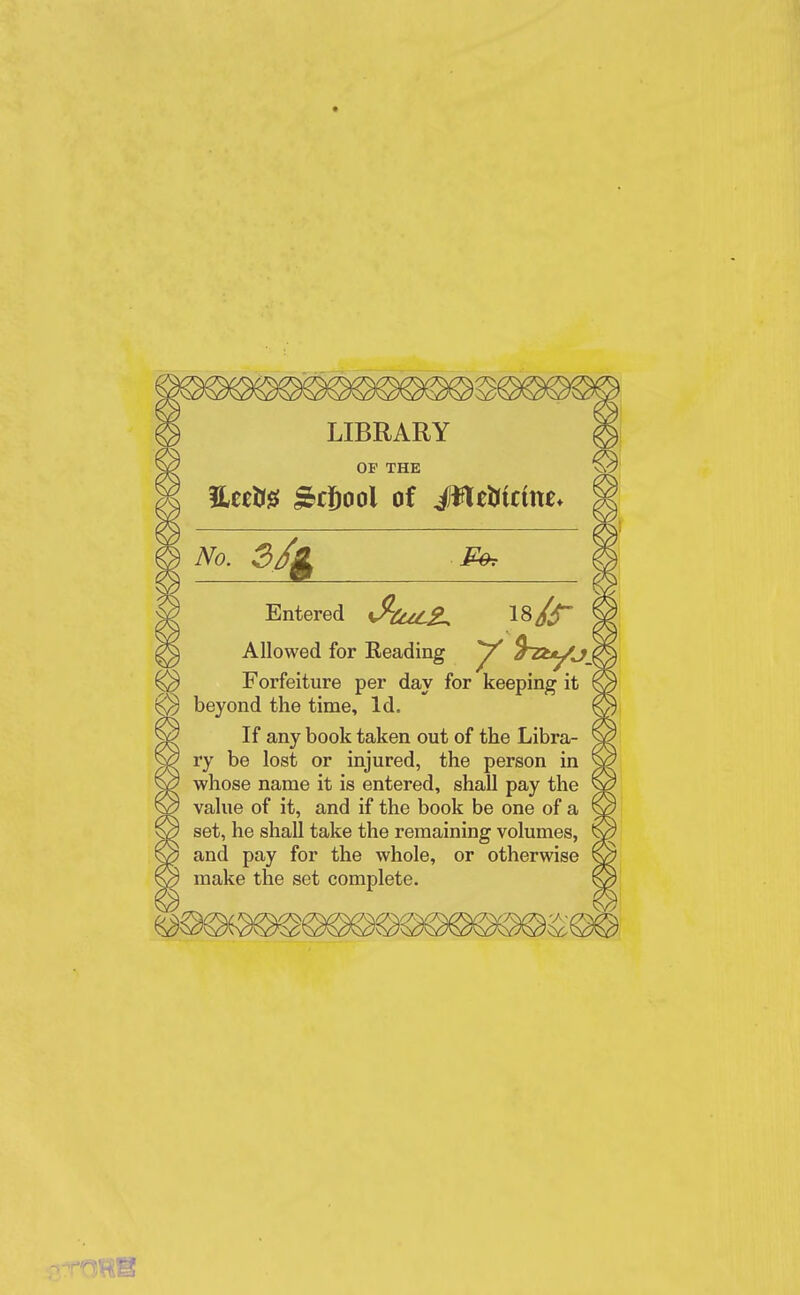 LIBRARY
OF THE
Leeds School of Medicine.
No. 31
Fo.
Entered 18
Allowed for Reading 7 Days.
Forfeiture per day for keeping it
beyond the time, 1d.
If any book taken out of the Libra-
ry be lost or injured, the person in
whose name it is entered, shall pay the
value of it, and if the book be one of a
set, he shall take the remaining volumes,
and pay for the whole, or otherwise
make the set complete.
STORE